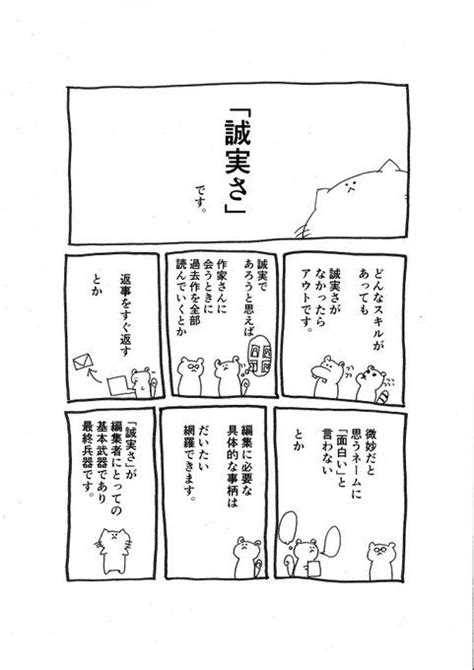 「誠実さ」
です。
どんなスキルが
あっても
誠実さが
なかったら
アウトです。
誠実で
あろうと思えば
作家さんに
会うときに
過去作を全部
読んでいくとか
返事をすぐ返す
とか
微妙だと
思うネームに
「面白い」と
言わない
とか
編集に必要な
具体的な事柄は
だいたい
網羅できます。
「誠実さ」が
編集者にとっての
基本武器であり
最終兵器です。